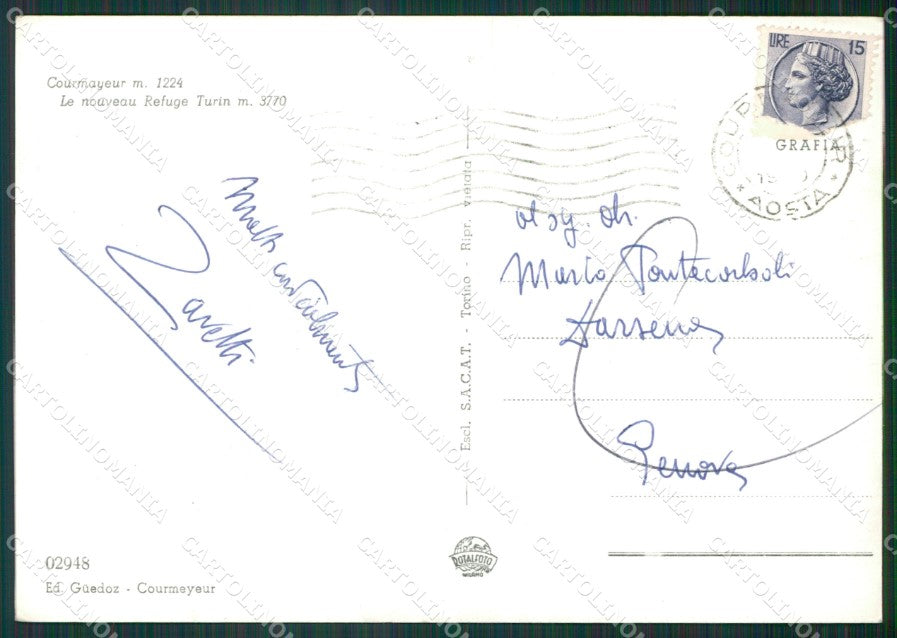 Courmayeur m. 1224
Le nouveau Refuge Turin m. 3770
LIRE 15
GRAFIA
AOSTA
Molto cordialmente
Zanetti
al sig. dr.
Mario Pontecorboli
Darsena
Genova
Escl. S.A.C.A.T. - Torino - Ripr. vietata
02948
Ed. Güedoz - Courmeyeur
ROTALFOTO
MILANO
CARTOLINOMANIA